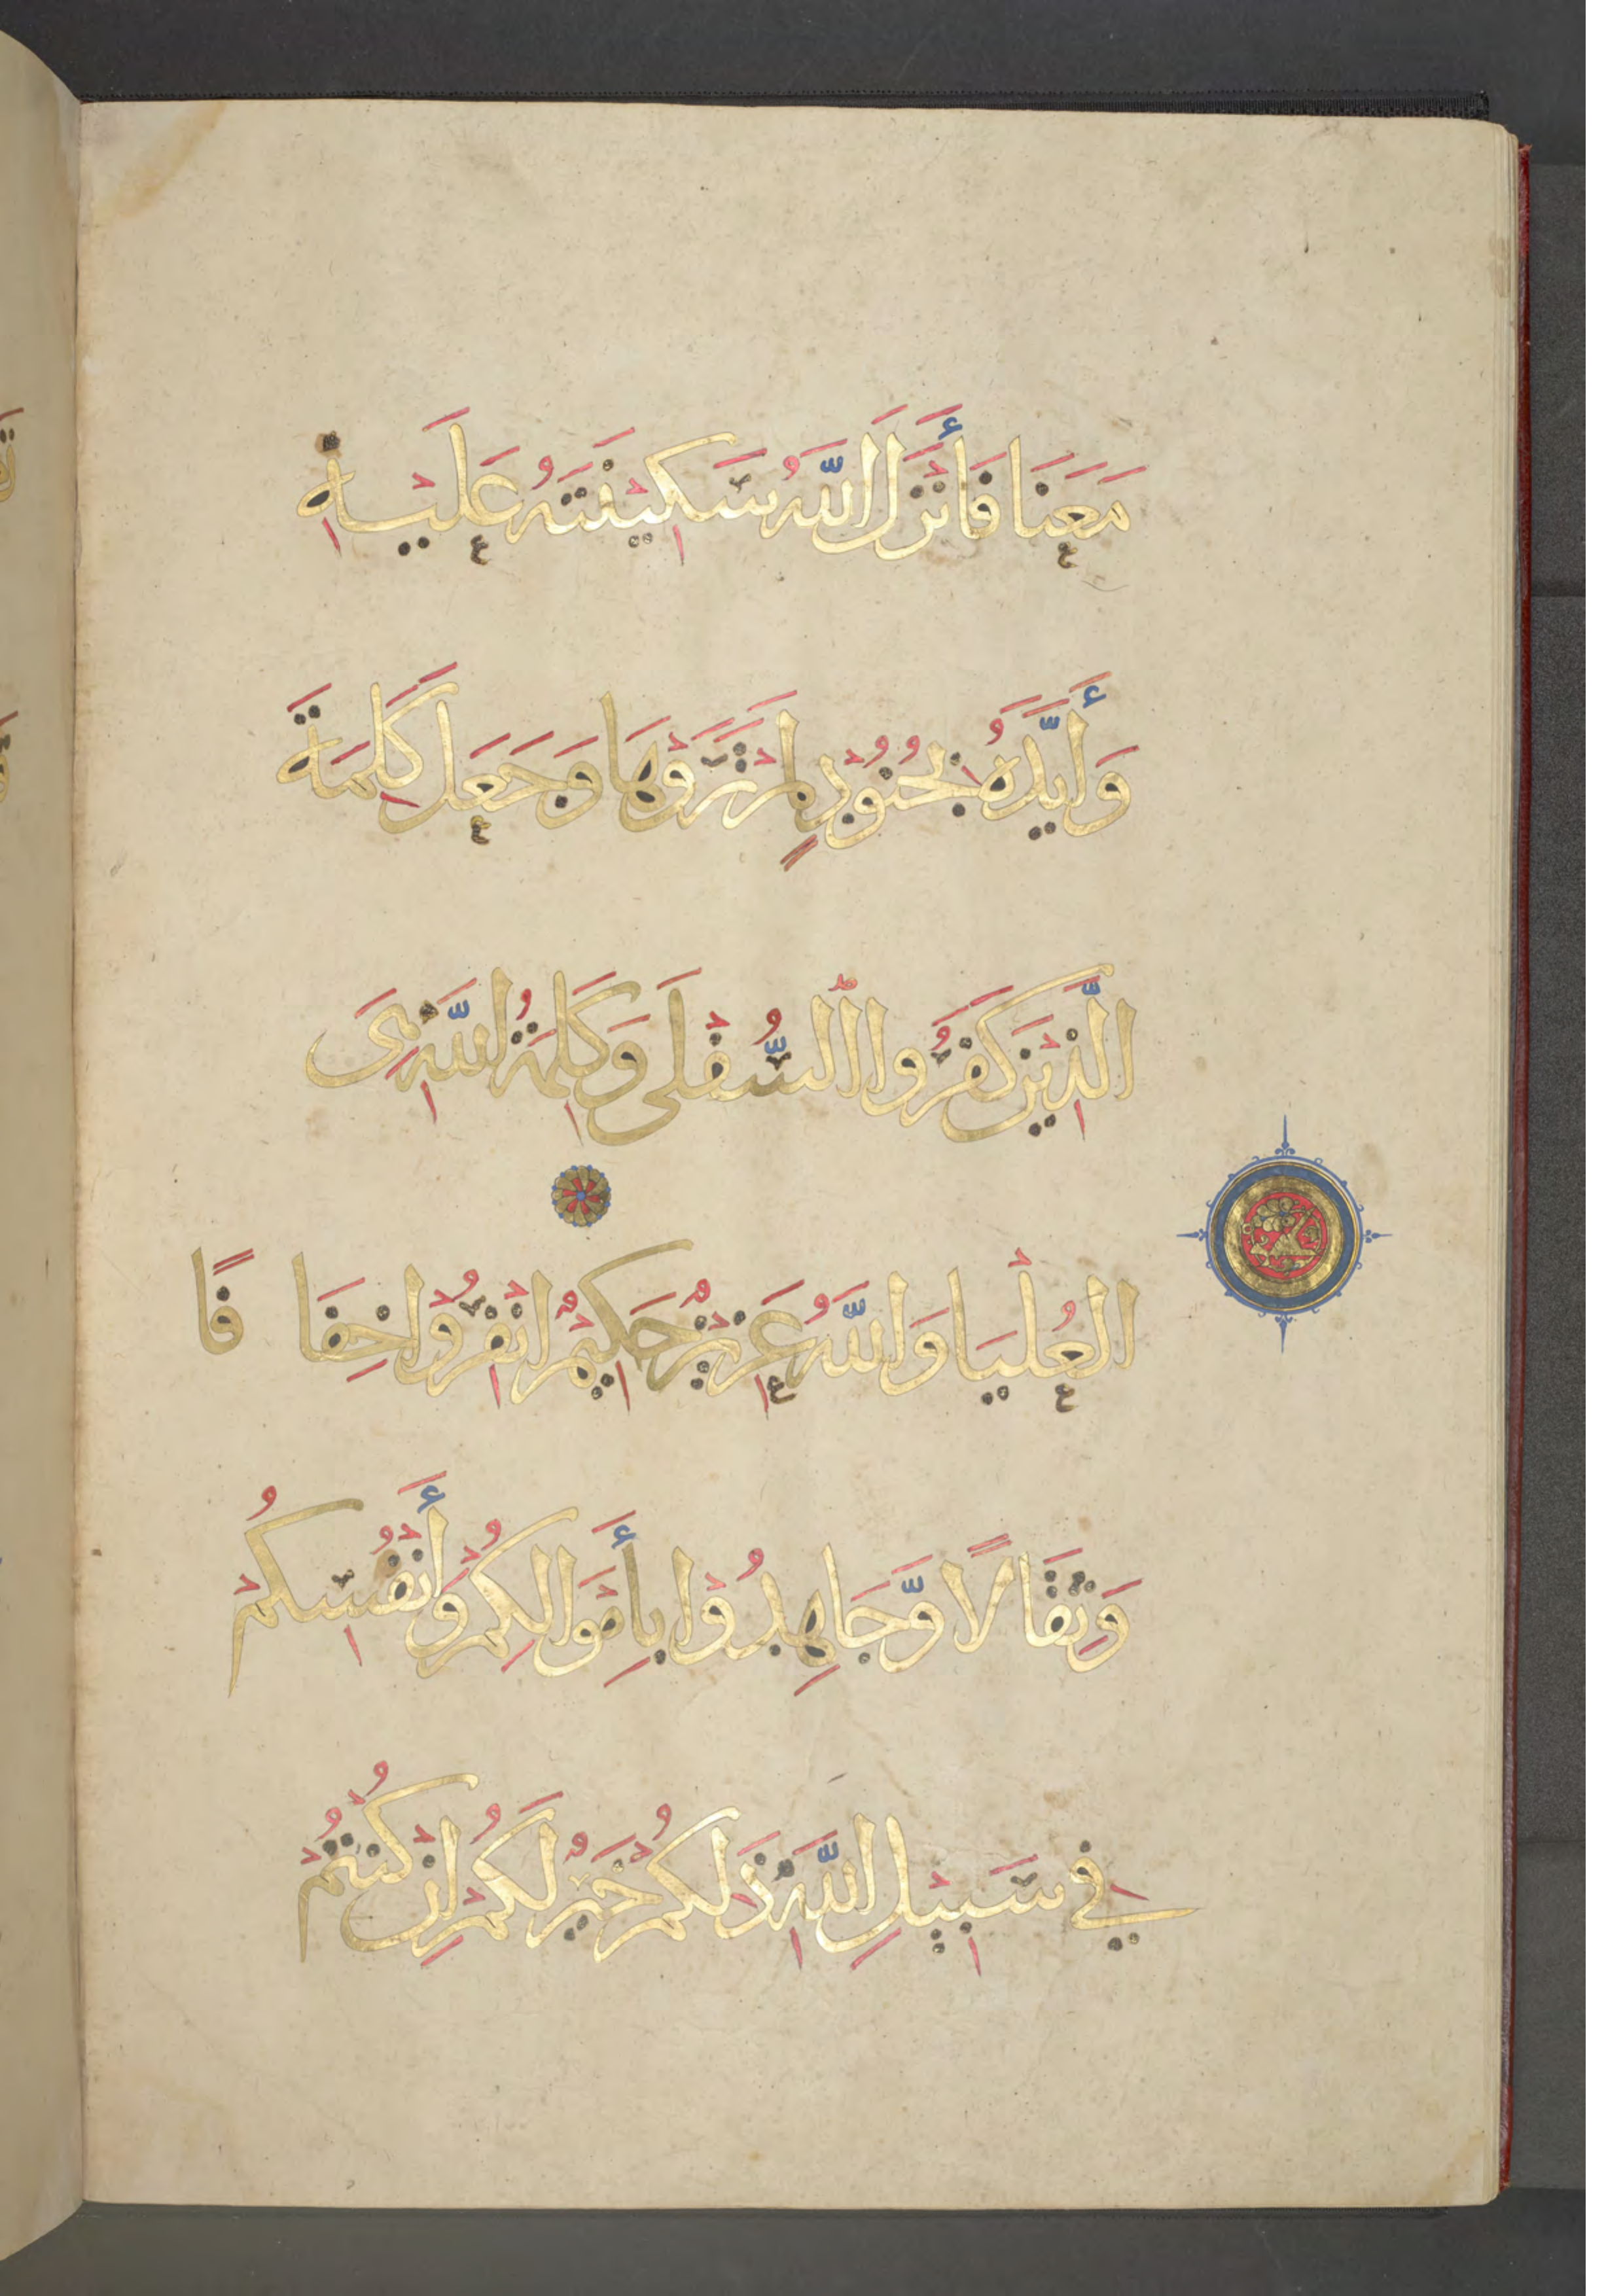 مَعَنَا فَأَنْزَلَ اللَّهُ سَكِيْنَتَهُ عَلَيْهِ
وَأَيَّدَهُ بِجُنُوْدٍ لَمْ تَرَوْهَا وَجَعَلَ كَلِمَةَ
الَّذِيْنَ كَفَرُوا السُّفْلَى وَكَلِمَةُ اللَّهِ هِىَ
الْعُلْيَا وَاللَّهُ عَزِيْزٌ حَكِيْمٌ انْفِرُوْا خِفَافًا
وَثِقَالًا وَّجَاهِدُوْا بِأَمْوَالِكُمْ وَأَنْفُسِكُمْ
فِي سَبِيْلِ اللَّهِ ذَلِكُمْ خَيْرٌ لَكُمْ إِنْ كُنْتُمْ